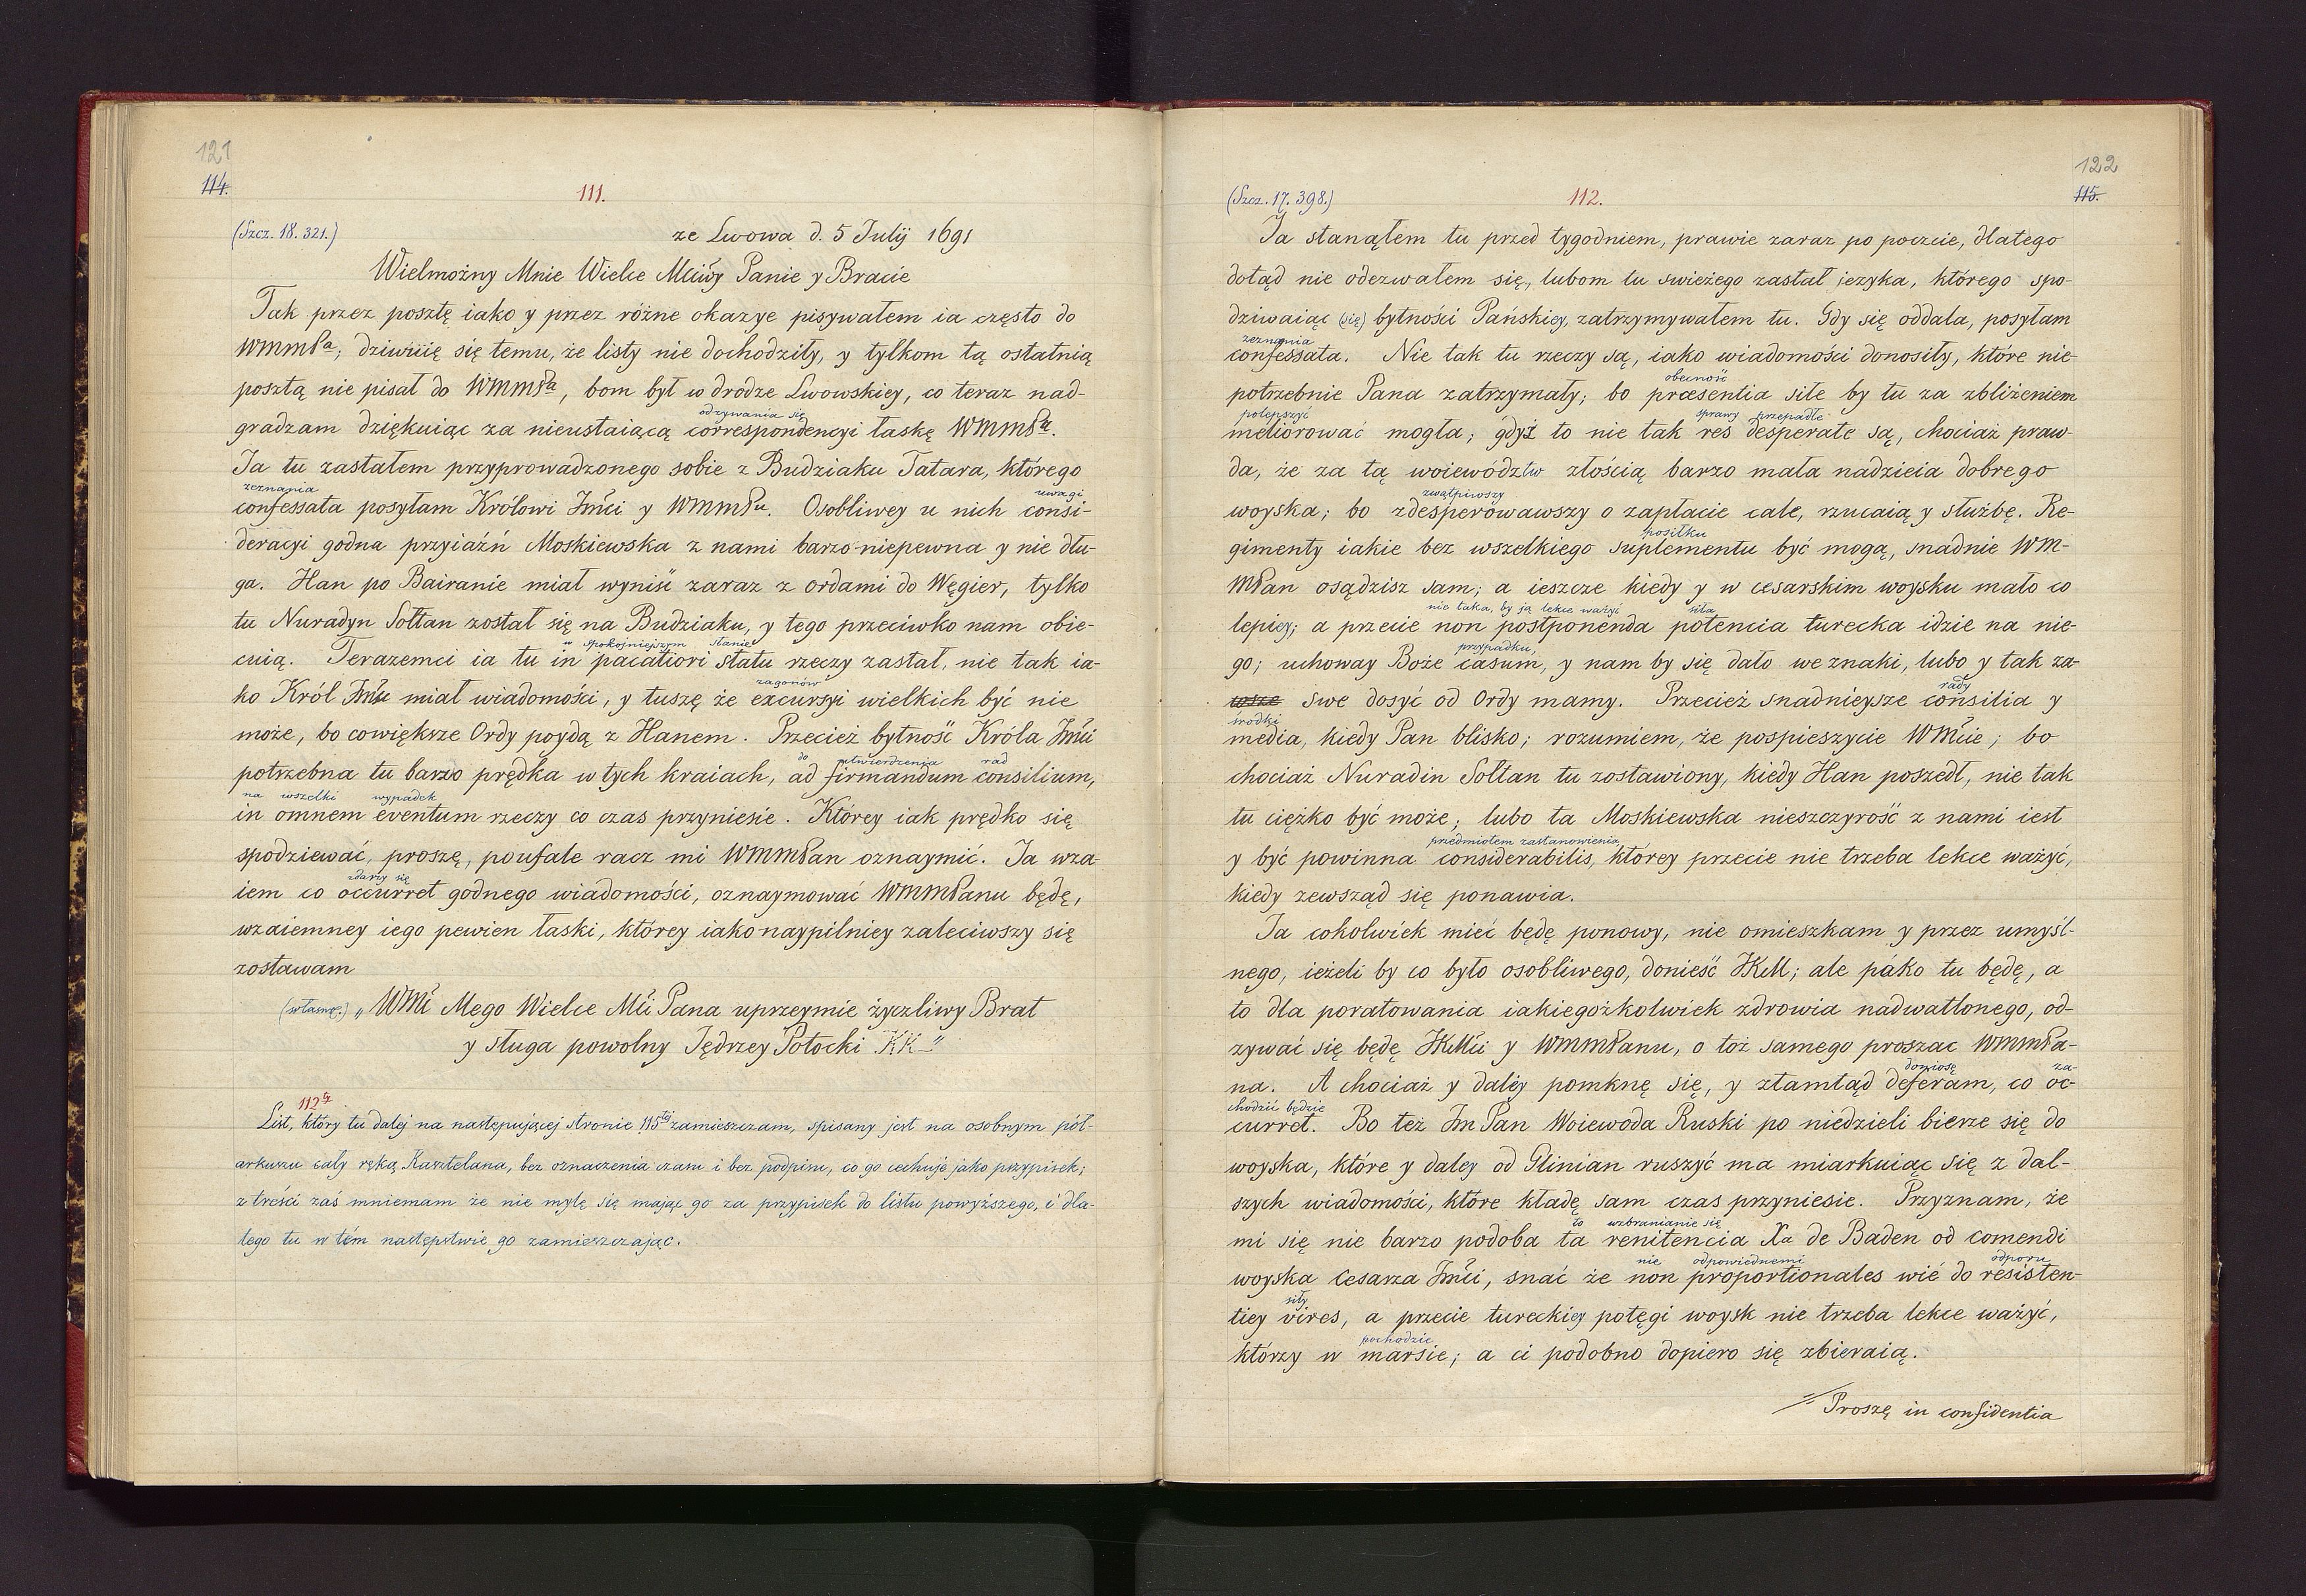 121
114.
111.
(Szcz. 18. 321.)
ze Lwowa d. 5 Julij 1691
Wielmożny Mnie Wielce Mciwy Panie y Bracie
Tak przez posztę iako y przez różne okazye pisywałem ia często do
WMMPa, dziwuię się temu, że listy nie dochodziły, y tylkom tą ostatnią
posztą nie pisał do WMMPa, bom był w drodze Lwowskiey, co teraz nad-
odzywania się
gradzam dziękuiąc za nieustaiącą correspondencyi łaskę WMMPa.
Ja tu zastałem przyprowadzonego sobie z Budziaku Tatara, którego
zeznania uwagi
confessata posyłam Królowi Jmci y WMMPu. Osobliwey u nich consi-
deracyi godna przyiaźń Moskiewska z nami barzo niepewna y nie dłu-
ga. Han po Bairanie miał wyniść zaraz z ordami do Węgier, tylko
tu Nuradyn Sołtan został się na Budziaku, y tego przeciwko nam obie-
w spokojniejszym stanie
cuią. Terazemci ia tu in pacatiori statu rzeczy zastał, nie tak ia-
zagonów
ko Król Jmć miał wiadomości, y tuszę że excursyi wielkich być nie
może, bo cowiększe Ordy poydą z Hanem. Przecież bytność Króla Jmci
do utwierdzenia rad
potrzebna tu barzo prędka w tych kraiach, ad firmandum consilium,
na wszelki wypadek
in omnem eventum rzeczy co czas przyniesie. Którey iak prędko się
spodziewać, proszę, poufale racz mi WMMPan oznaymić. Ja wza-
zdarzy się
iem co occurret godnego wiadomości, oznaymować WMMPanu będę,
wzaiemney iego pewien łaski, którey iako naypilniey zaleciwszy się
zostawam
(własnor.) „WMci Mego Wielce Mci Pana uprzeymie życzliwy Brat
y sługa powolny Jędrzey Potocki KK"
112gi
List, który tu dalej na następującej stronie 115tej zamieszczam, spisany jest na osobnym pół-
arkuszu cały ręką Kasztelana, bez oznaczenia czasu i bez podpisu, co go cechuje jako przypisek;
z treści zaś mniemam że nie mylę się mając go za przypisek do listu powyższego, i dla-
tego tu w tém następstwie go zamieszczając.
122
115.
(Szcz. 17. 398.)
112.
Ja stanąłem tu przed tygodniem, prawie zaraz po poczcie, dlatego
dotąd nie odezwałem się, lubom tu swieżego zastał języka, którego spo-
dziwaiąc (się) bytności Pańskiey, zatrzymywałem tu. Gdy się oddala, posyłam
zeznania
confessata. Nie tak tu rzeczy są, iako wiadomości donosiły, które nie-
obecność
potrzebnie Pana zatrzymały; bo præsentia siłe by tu za zbliżeniem
polepszyć sprawy przepadłe
meliorować mogła; gdyż to nie tak res desperate są, chociaż praw-
da, że za tą woiewództw złością barzo mała nadzieia dobrego
zwątpiwszy
woyska; bo zdesperowawszy o zapłacie cale, rzucaią y służbę. Re-
posiłku
gimenty iakie bez wszelkiego suplementu być mogą, snadnie WM-
MPan osądzisz sam; a ieszcze kiedy y w cesarskim woysku mało co
nie taka, by ją lekce ważyć siła
lepiey; a przecie non postponenda potencia turecka idzie na nie-
przypadku,
go; uchoway Boże casum, y nam by się dało we znaki, lubo y tak za-
rady
wsze swe dosyć od Ordy mamy. Przecież snadnieysze consilia y
środki
media, kiedy Pan blisko; rozumiem, że pospieszycie WMcie; bo
chociaż Nuradin Sołtan tu zostawiony, kiedy Han poszedł, nie tak
tu ciężko być może; lubo ta Moskiewska nieszczyrość z nami iest
przedmiotem zastanowienia,
y być powinna considerabilis, którey przecie nie trzeba lekce ważyć,
kiedy zewsząd się ponawia.
Ja cokolwiek mieć będę ponowy, nie omieszkam y przez umyśl-
nego, ieżeli by co było osobliwego, donieść JKM; ale páko tu będę, a
to dla poratowania iakiegożkolwiek zdrowia nadwatlonego, od-
zywać się będę JKMci y WMMPanu, o toż samego proszac WMMPa-
doniosę za-
na. A chociaż y daléy pomknę się, y ztamtąd deferam, co oc-
chodzić będzie
curret. Bo też Jm Pan Woiewoda Ruski po niedzieli bierze się do
woyska, które y daley od Glinian ruszyć ma miarkuiąc się z dal-
szych wiadomości, które kładę sam czas przyniesie. Przyznam, że
to wzbranianie się
mi się nie barzo podoba ta renitencia Xa de Baden od comendi
nie odpowiednemi odporu
woyska Cesarza Jmci, snać że non proportionales wić do resisten-
siły
tiey vires, a przecie tureckiey potęgi woysk nie trzeba lekce ważyć,
pochodzie
którzy w marsie; a ci podobno dopiero się zbieraią.
Proszę in confidentia